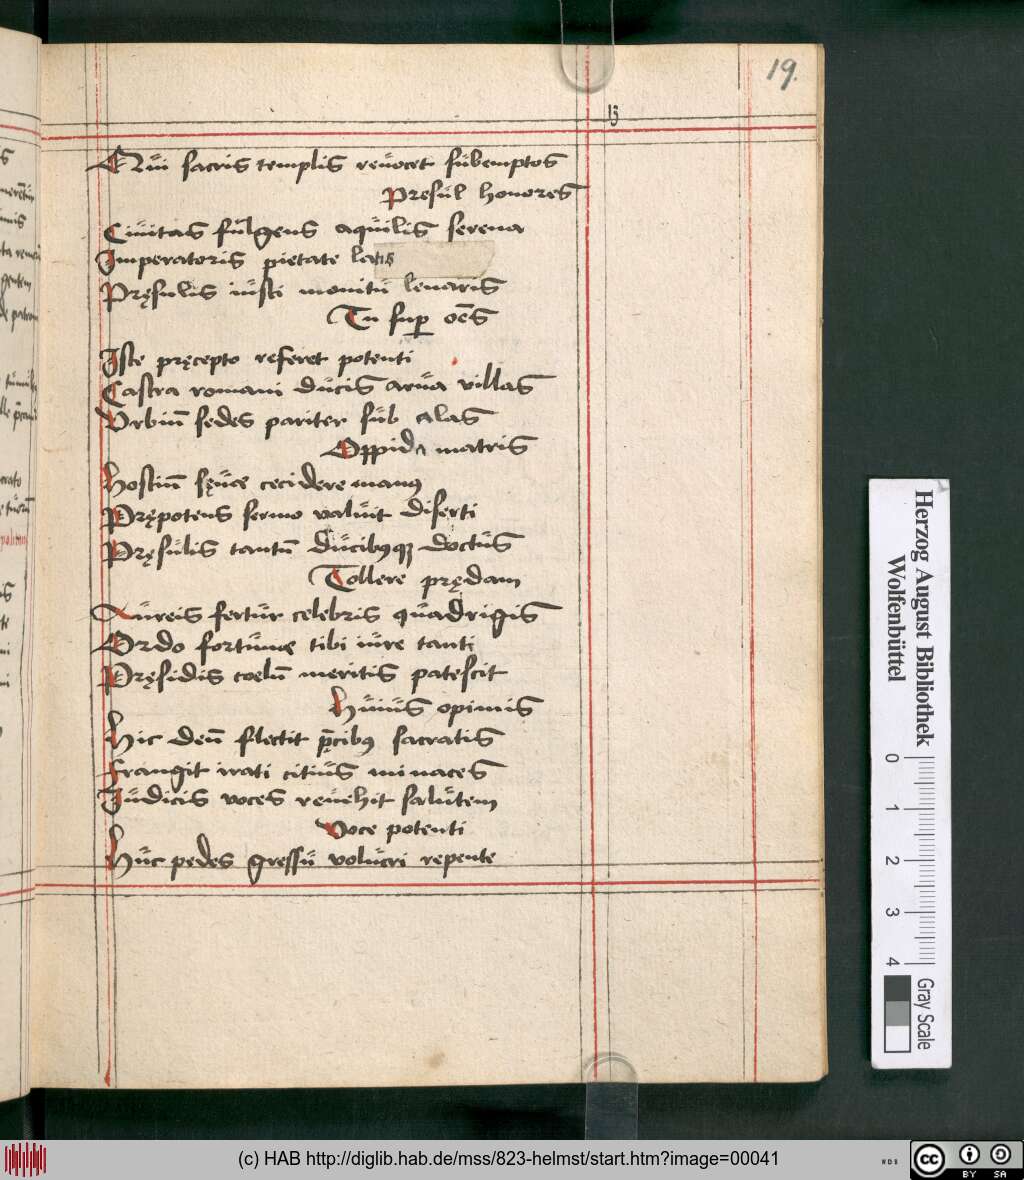 19.
13
Qui sacris templis revocet subemptos
Presul honores
Civitas fulgens aquilis serena
Imperatoris pietate latis
Pręsulis iusti monitu levaris
Tu sup oēs
Iste pręcepto referet potenti
Castra romani ducis arva villas
Urbiū sedes pariter sub alas
Oppida matris
Hostiū sęvę cecidere manꝰ
Prępotens sermo valuit diserti
Pręsulis tantū ducibꝰqꝫ doctus
Tollere prędam
Aureis fertur celebris quadrigis
Ordo fortunę tibi iure tanti
Pręsidis coelū meritis patescit
Huius opimis
Hic deū flectit p̄cibꝰ sacratis
Frangit irati citius minaces
Iudicis voces revehit salutem
Voce potenti
Huc pedes gressu volucri repente
Herzog August Bibliothek
Wolfenbüttel
0 1 2 3 4
Gray Scale
(c) HAB http://diglib.hab.de/mss/823-helmst/start.htm?image=00041
cc BY SA